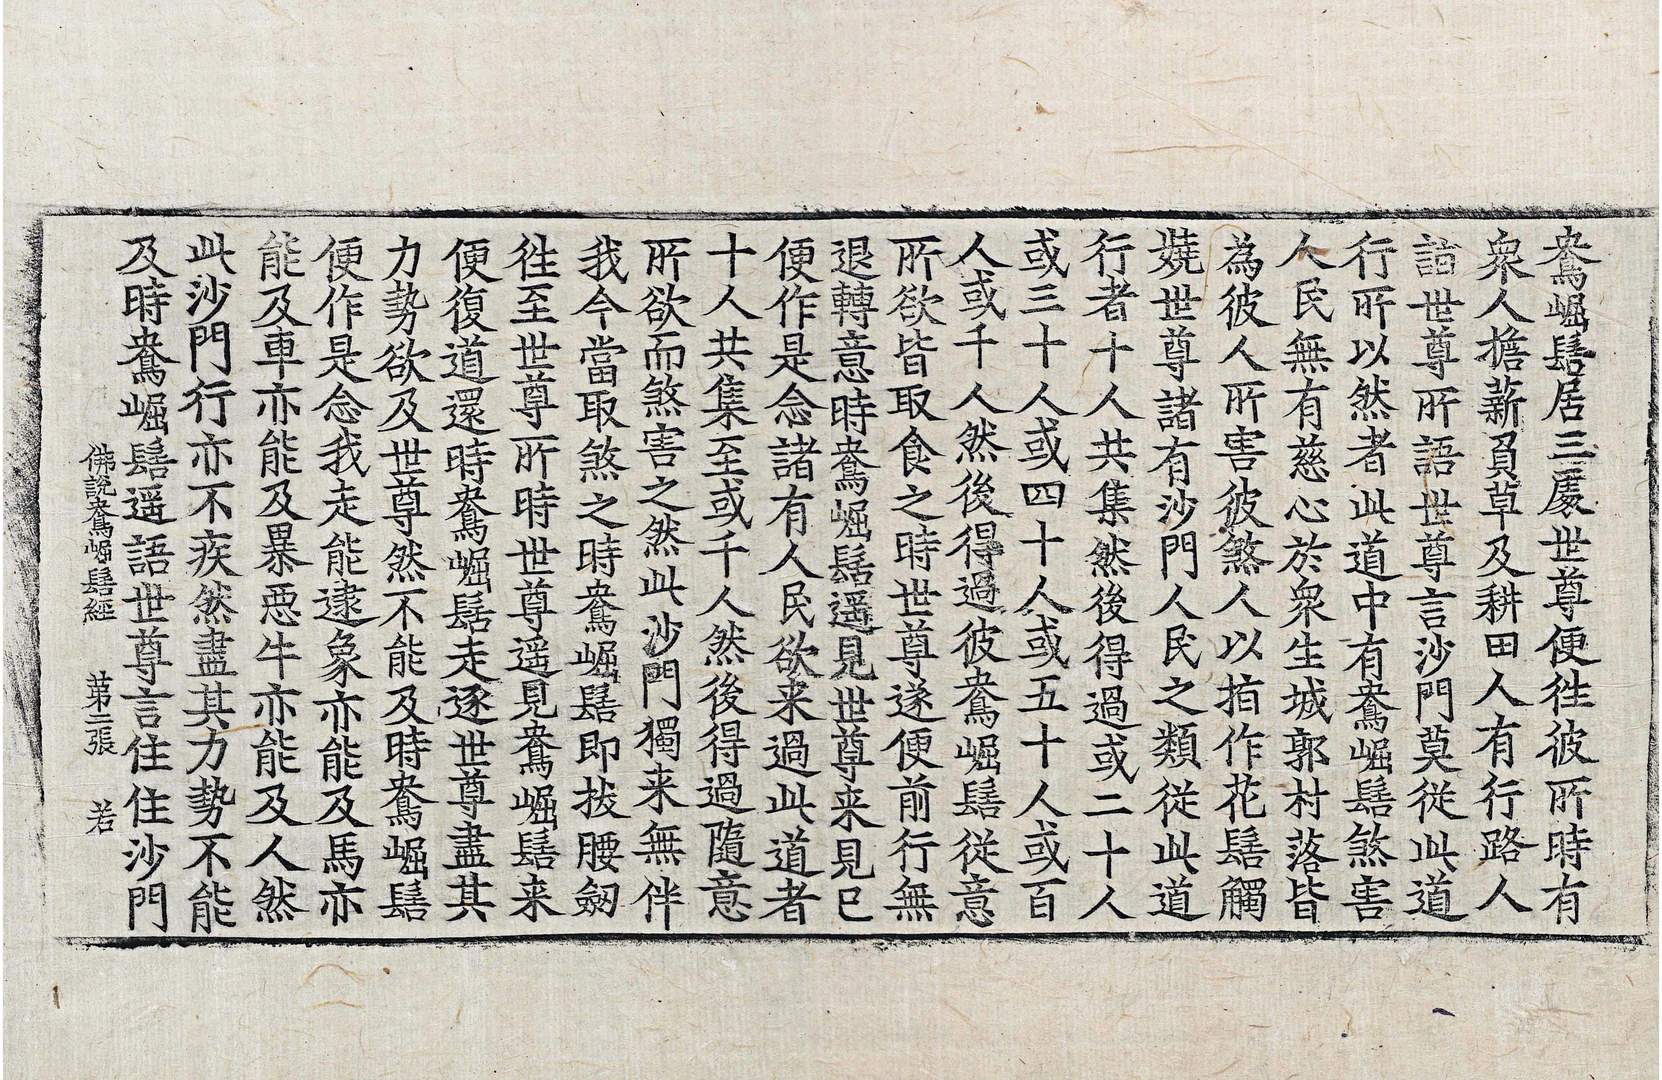 鴦崛髻居三處世尊便徃彼所時有
衆人擔薪負草及耕田人有行路人
詣世尊所語世尊言沙門莫從此道
行所以然者此道中有鴦崛髻煞害
人民無有慈心於衆生城郭村落皆
為彼人所害彼煞人以指作花髻觸
嬈世尊諸有沙門人民之類從此道
行者十人共集然後得過或二十人
或三十人或四十人或五十人或百
人或千人然後得過彼鴦崛髻從意
所欲皆取食之時世尊遂便前行無
退轉意時鴦崛髻遥見世尊来見已
便作是念諸有人民欲来過此道者
十人共集至或千人然後得過隨意
所欲而煞害之然此沙門獨来無伴
我今當取煞之時鴦崛髻即拔腰劔
徃至世尊所時世尊遥見鴦崛髻来
便復道還時鴦崛髻走逐世尊盡其
力勢欲及世尊然不能及時鴦崛髻
便作是念我走能逮象亦能及馬亦
能及車亦能及暴惡牛亦能及人然
此沙門行亦不疾然盡其力勢不能
及時鴦崛髻遥語世尊言住住沙門
佛說鴦崛髻經 苐二張 若